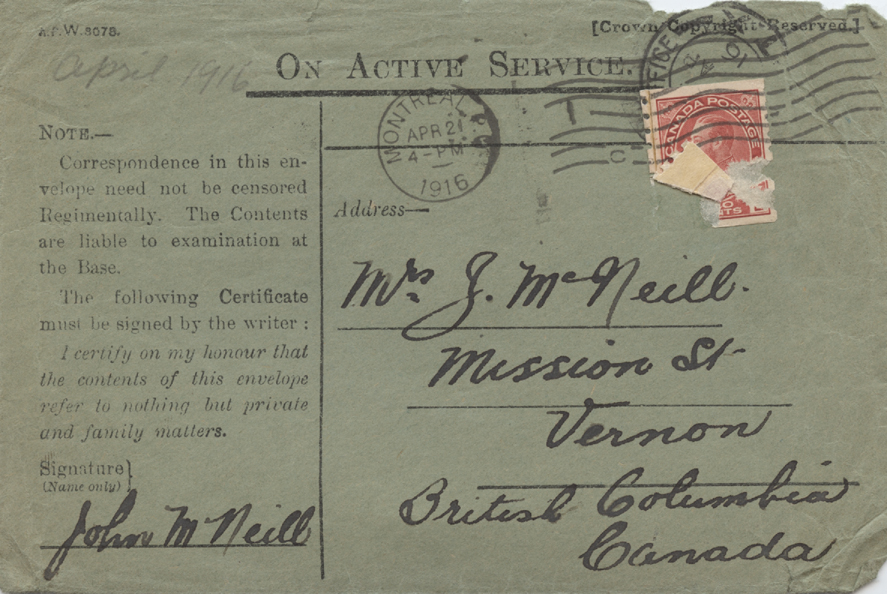 A.F.W. 3078.
[Crown Copyright Reserved.]
April 1916
ON ACTIVE SERVICE.
NOTE.—
Correspondence in this en-
velope need not be censored
Regimentally. The Contents
are liable to examination at
the Base.
The following Certificate
must be signed by the writer :
I certify on my honour that
the contents of this envelope
refer to nothing but private
and family matters.
Signature}
(Name only)
John McNeill
MONTREAL, P.Q.
APR 21
4-PM
1916
FICE
CANADA POSTAGE
TS
Address—
Mrs J. McNeill.
Mission St
Vernon
British Columbia
Canada